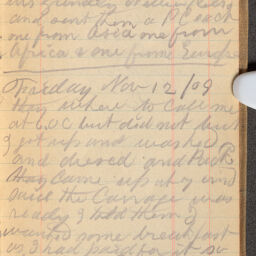 and sent them a PC each
one from Asia one from
Africa & one from Europe
Friday Nov 12/09
Hay where to call me
at 6,oc but did not but
I got up and washed
and dresed and Pack
Hay came up at 7 and
said the Carrage was
ready I told them I
wanted some breakfast
as I had paid for it so